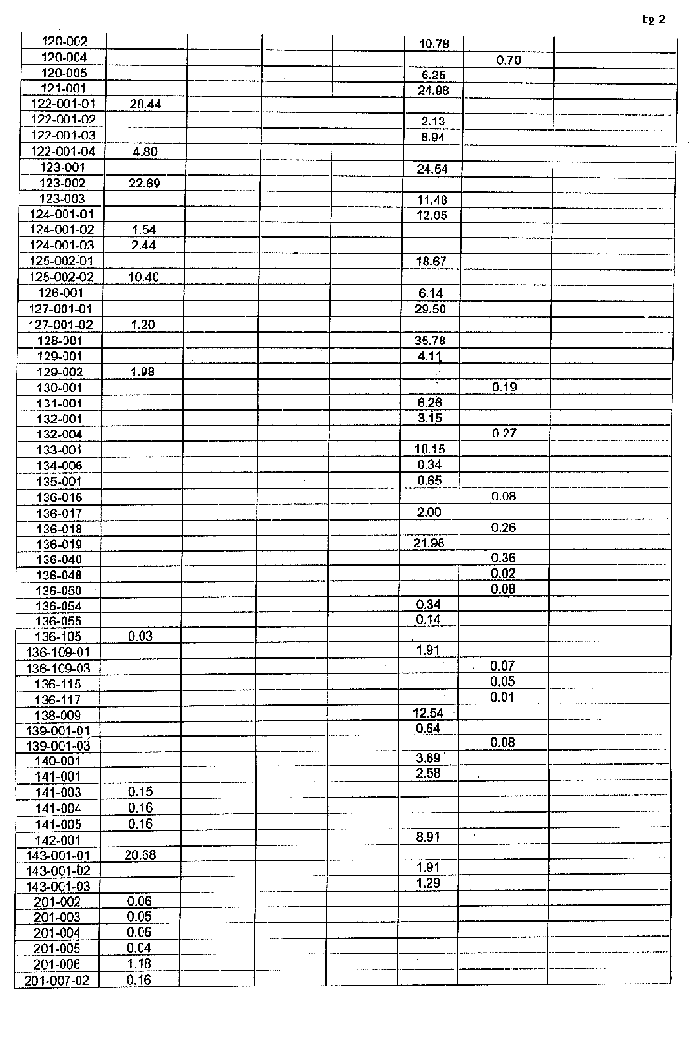 pg 2
120-002 10.78
120-004 0.70
120-005 6.25
121-001 24.98
122-001-01 20.44
122-001-02 2.13
122-001-03 8.94
122-001-04 4.80
123-001 24.54
123-002 22.69
123-003 11.48
124-001-01 12.05
124-001-02 1.54
124-001-03 2.44
125-002-01 18.67
125-002-02 10.40
126-001 6.14
127-001-01 29.50
127-001-02 1.20
128-001 35.78
129-001 4.11
129-002 1.98
130-001 0.19
131-001 6.28
132-001 3.15
132-004 0.27
133-001 10.15
134-006 0.34
135-001 0.65
136-016 0.08
136-017 2.00
136-018 0.26
136-019 21.98
136-040 0.36
136-048 0.02
136-050 0.08
136-054 0.34
136-055 0.14
136-105 0.03
136-109-01 1.91
136-109-03 0.07
136-115 0.05
136-117 0.01
138-009 12.54
139-001-01 0.64
139-001-03 0.08
140-001 3.69
141-001 2.58
141-003 0.15
141-004 0.16
141-005 0.16
142-001 8.91
143-001-01 20.58
143-001-02 1.91
143-001-03 1.29
201-002 0.06
201-003 0.05
201-004 0.06
201-005 0.04
201-006 1.18
201-007-02 0.16